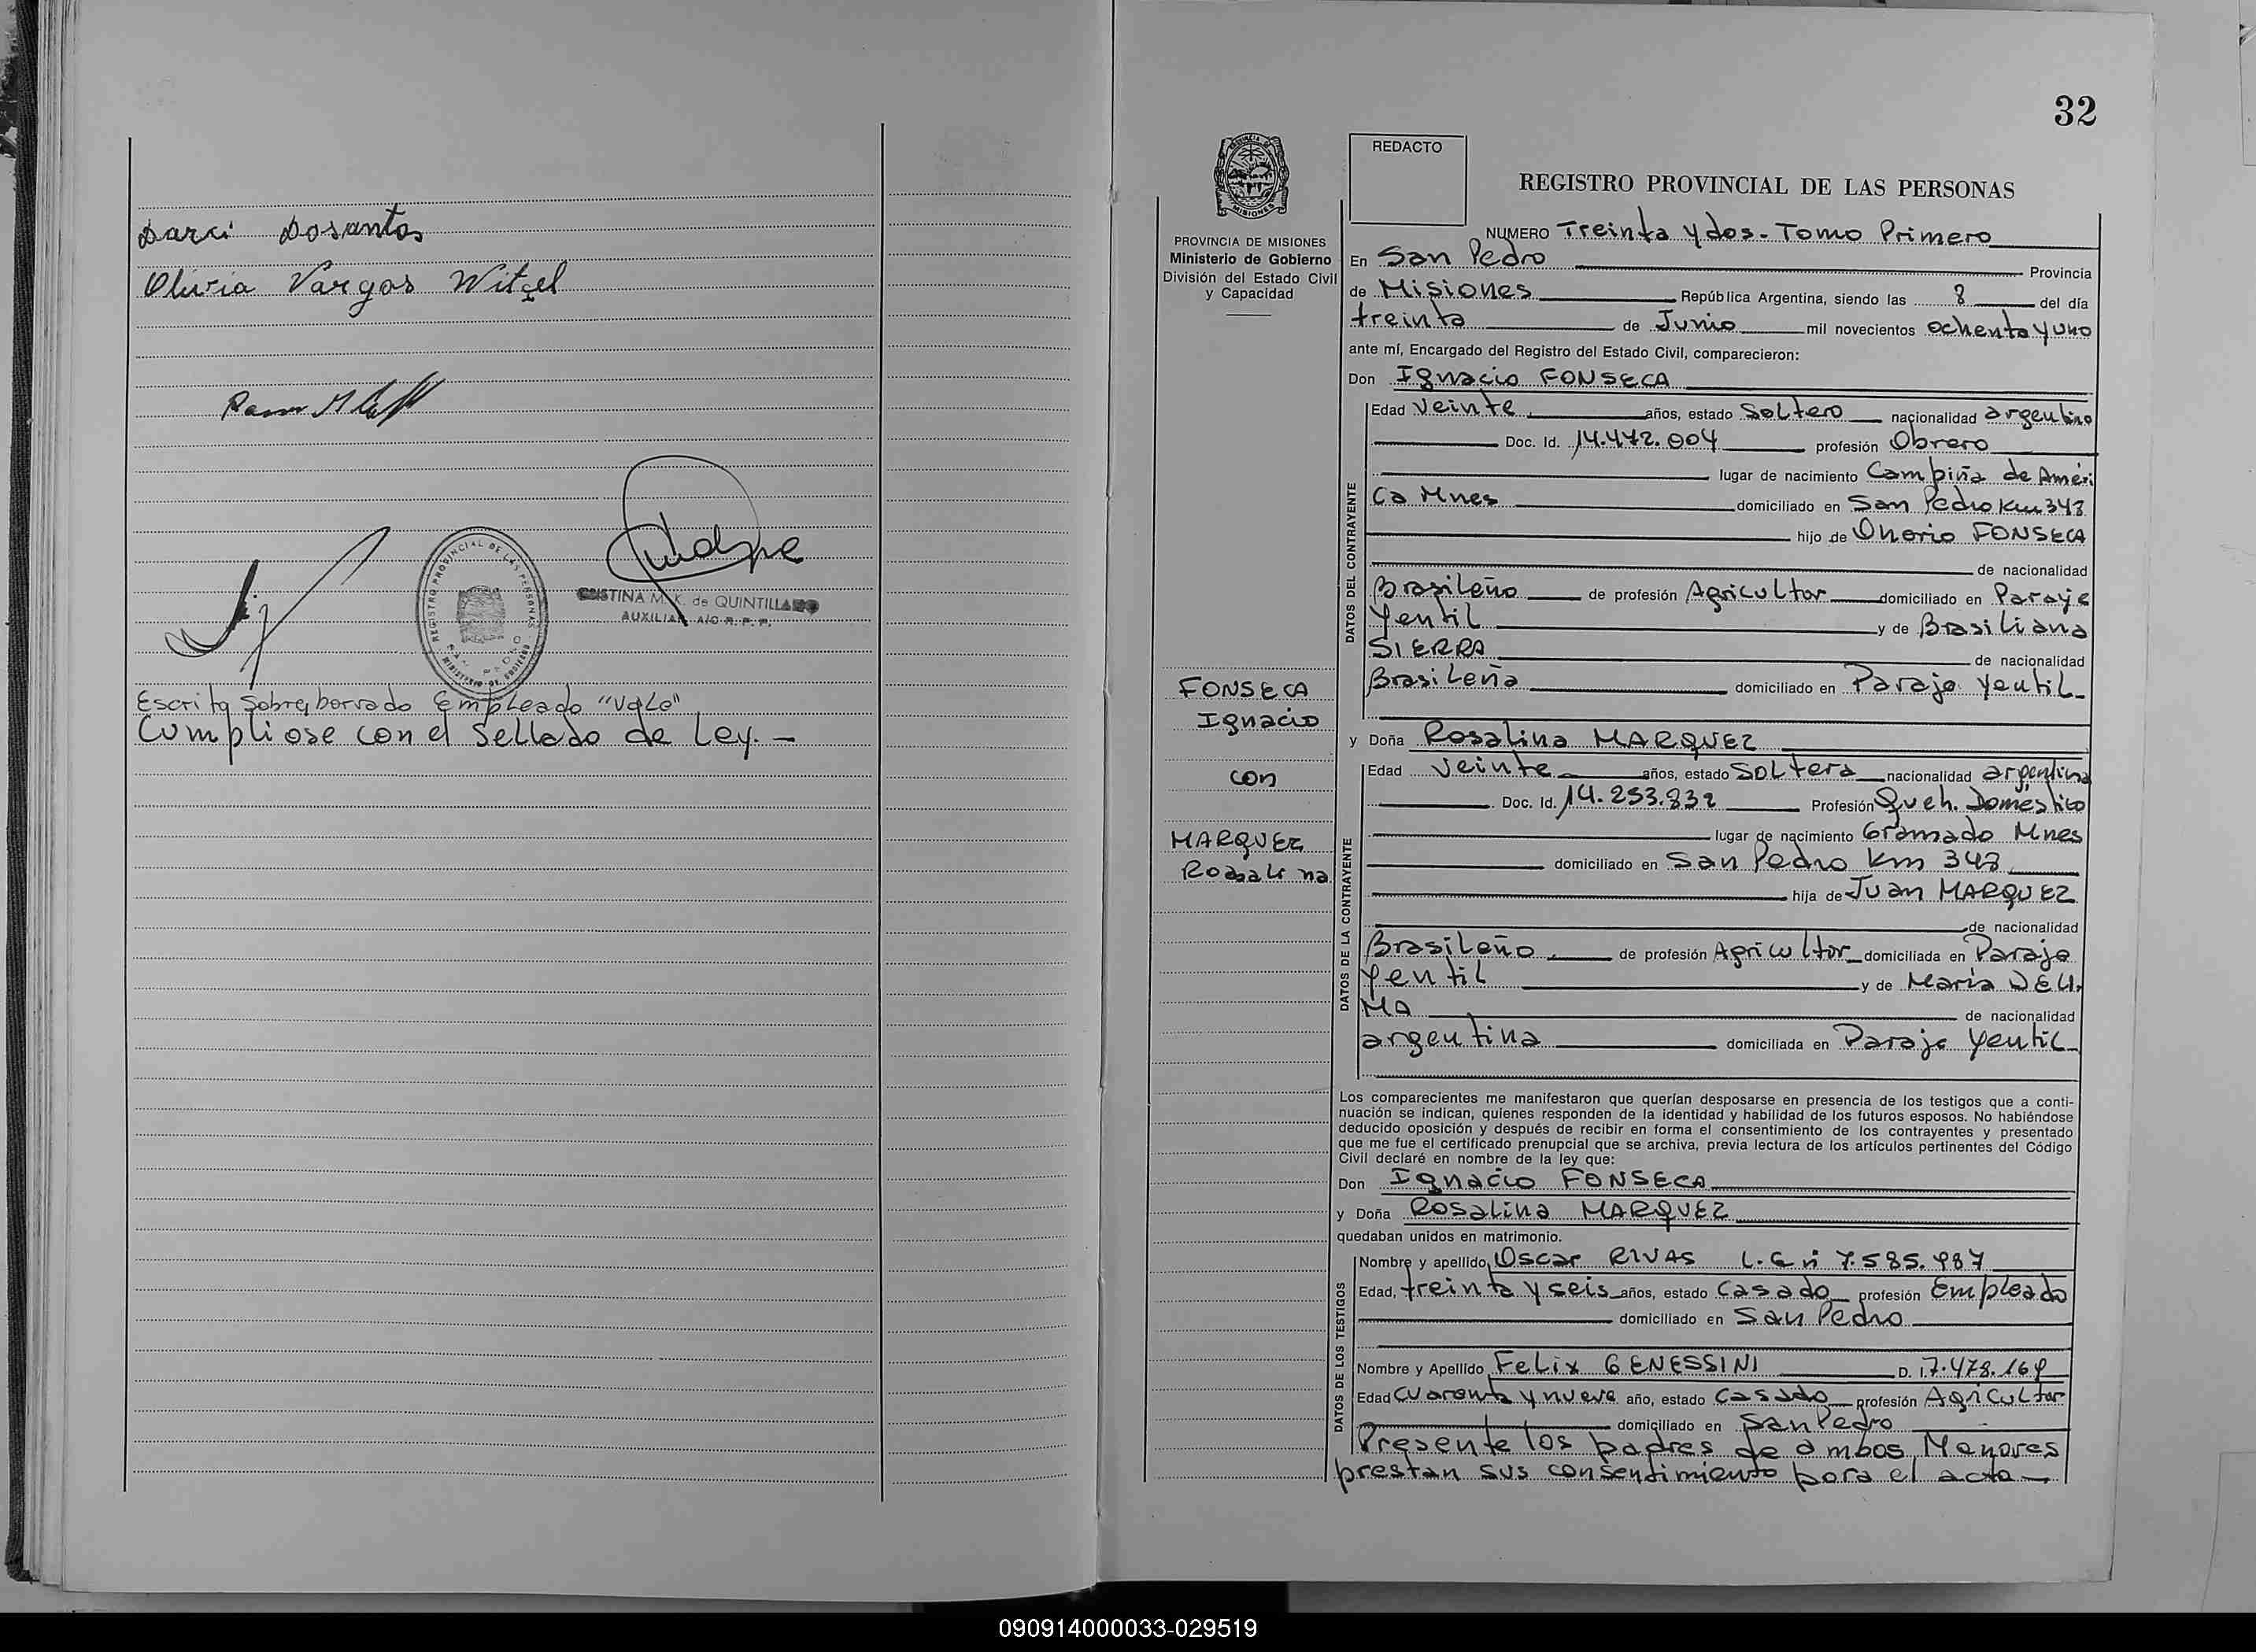 Darci Dosantos
Olivia Vargas Witzel
REGISTRO PROVINCIAL DE LAS PERSONAS
CRISTINA M. K. de QUINTILLANO
AUXILIAR A/C R. P. P.
Escrito Sobreborrado Empleado "Vale"
Cumpliose con el Sellado de Ley. —
32
PROVINCIA DE MISIONES
Ministerio de Gobierno
División del Estado Civil
y Capacidad
FONSECA
Ignacio
con
MARQUEZ
Rosalina
REDACTO
REGISTRO PROVINCIAL DE LAS PERSONAS
NUMERO Treinta y dos - Tomo Primero
En San Pedro Provincia
de Misiones República Argentina, siendo las 8 del día
treinta de Junio mil novecientos ochenta y uno
ante mí, Encargado del Registro del Estado Civil, comparecieron:
Don Ignacio FONSECA
DATOS DEL CONTRAYENTE
Edad veinte años, estado Soltero nacionalidad argentino
Doc. Id. 14.472.004 profesión Obrero
lugar de nacimiento Campiña de Améri
ca Mnes domiciliado en San Pedro Km 348
hijo de Onorio FONSECA
de nacionalidad
Brasileño de profesión Agricultor domiciliado en Paraje
Yentil y de Brasiliana
SIERRA de nacionalidad
Brasileña domiciliado en Paraje Yentil
y Doña Rosalina MARQUEZ
DATOS DE LA CONTRAYENTE
Edad veinte años, estado Soltera nacionalidad argentina
Doc. Id. 14.253.832 Profesión Queh. Doméstico
lugar de nacimiento Gramado Mnes
domiciliado en San Pedro Km 348
hija de Juan MARQUEZ
de nacionalidad
Brasileño de profesión Agricultor domiciliada en Paraje
Yentil y de María
MA de nacionalidad
argentina domiciliada en Paraje Yentil
Los comparecientes me manifestaron que querían desposarse en presencia de los testigos que a conti-
nuación se indican, quienes responden de la identidad y habilidad de los futuros esposos. No habiéndose
deducido oposición y después de recibir en forma el consentimiento de los contrayentes y presentado
que me fue el certificado prenupcial que se archiva, previa lectura de los artículos pertinentes del Código
Civil declaré en nombre de la ley que:
Don Ignacio FONSECA
y Doña Rosalina MARQUEZ
quedaban unidos en matrimonio.
DATOS DE LOS TESTIGOS
Nombre y apellido Oscar RIVAS L.E nº 7.585.987
Edad, treinta y seis años, estado Casado profesión Empleado
domiciliado en San Pedro
Nombre y Apellido Felix GENESSINI D. I. 7.478.169
Edad cuarenta y nueve año, estado Casado profesión Agricultor
domiciliado en San Pedro
Presente los padres de ambos Menores
prestan sus consentimiento para el acto —
090914000033-029519